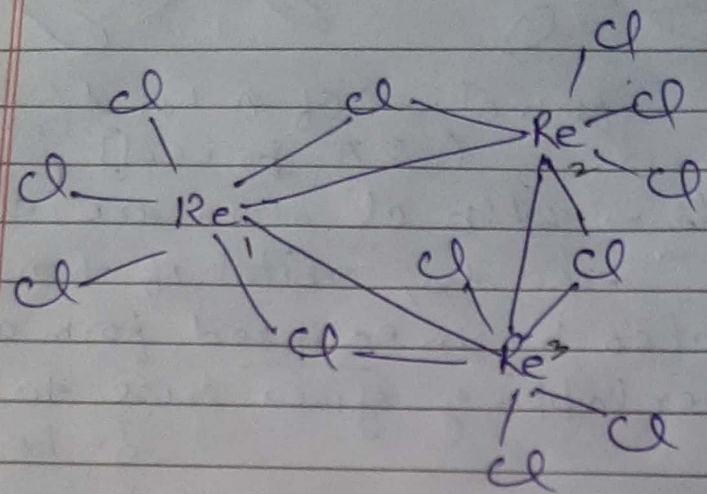 Cl
Cl Cl Cl
Re 2 Cl
Cl
Re 1
Cl Cl
Cl
Cl Re 3
Cl
Cl